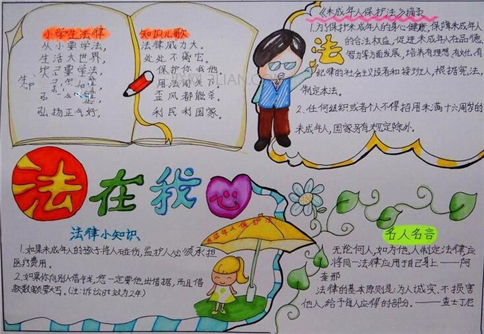 小学生法律
从小要学法,
生活大世界,
弘扬正气好。
知识儿歌
法律威力大,
处处不离它,
保护你我他,
歪风都能杀,
利民利国家。
《未成年人保护法》摘要
1.为了保护未成年人的身心健康,保障未成年人
的合法权益,促进未成年人在品德
智力等方面发展,培养有理想有
纪律的社会主义接班人,根据宪法,
制定本法。
2.任何组织或者个人不得招用未满十六周岁的
未成年人,国家另有规定除外。
法
法在我心
法律小知识
1.如果未成年人的孩子将人被伤,监护人必须承担
医疗费用。
2.如果你向别人借钱,您一定要他出借据,而且借
款数额要大写。
名人名言
无论何人,如为他人制定法律,应
将同一法律应用于自己身上——阿
奎那
法律的基本原则是:为人诚实,不损害
他人,给予每人应得的部分。——查士丁尼